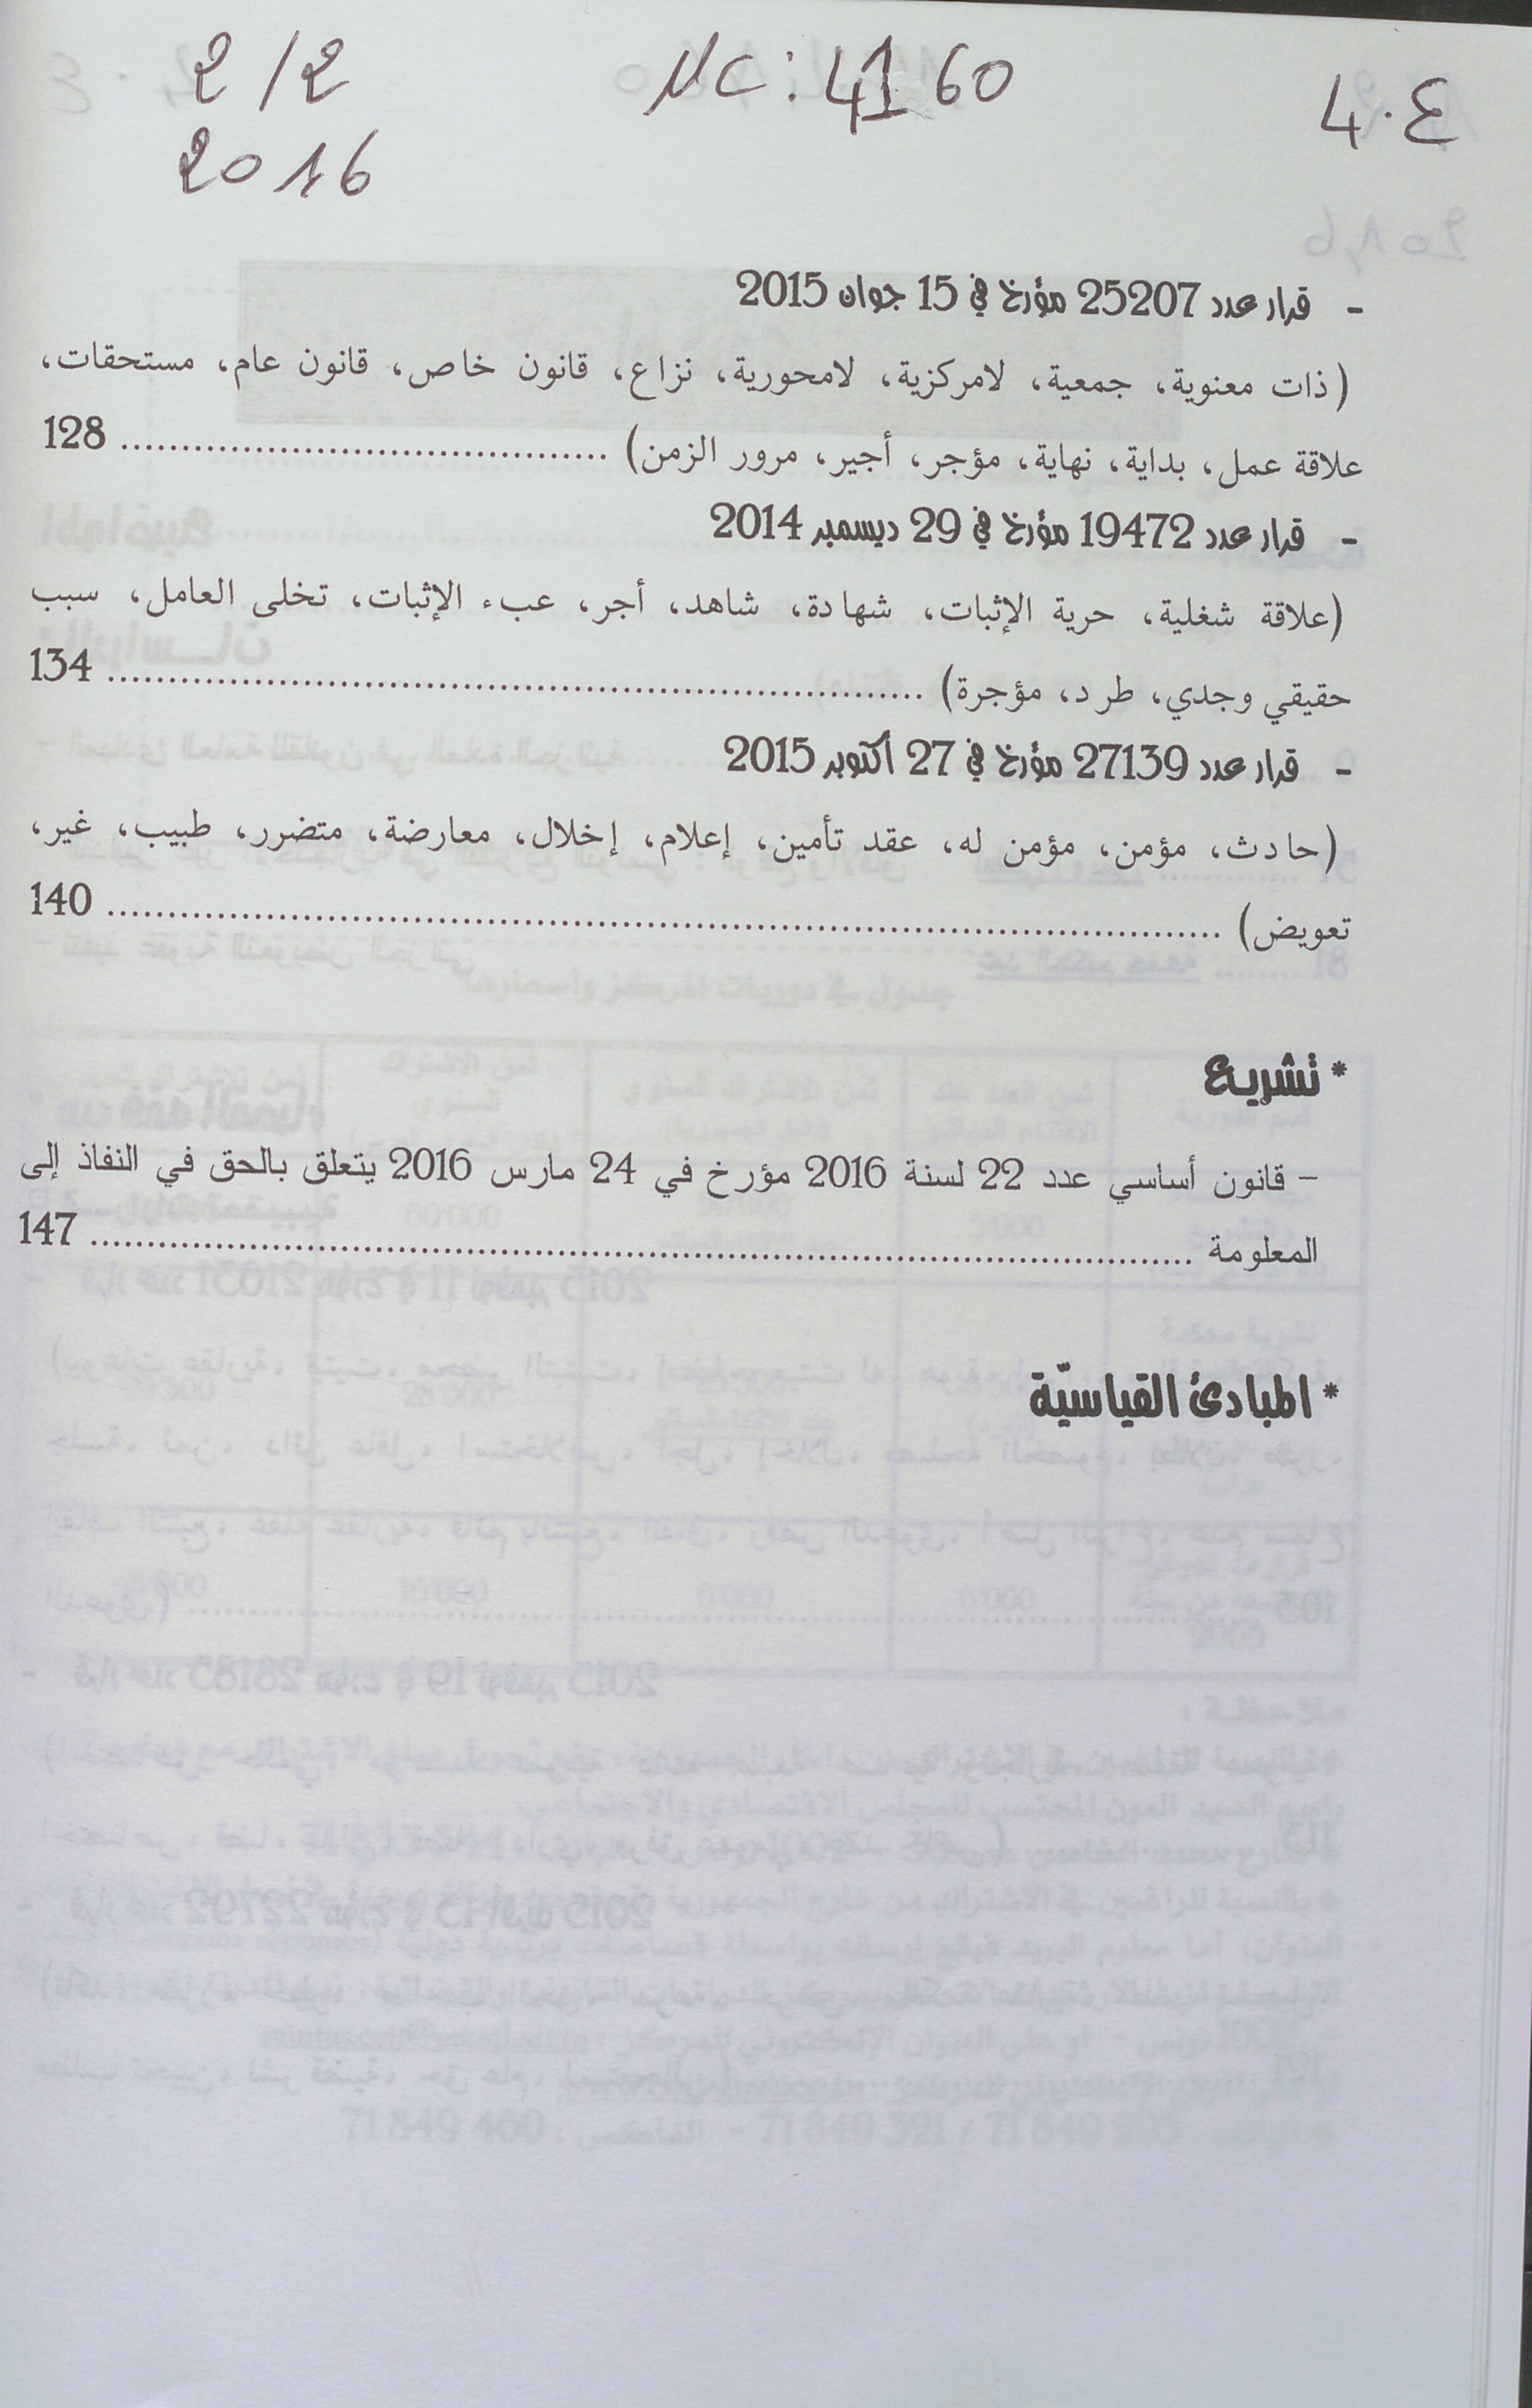 4.ع
NC: 4160
2/2
2016
- قرار عدد 25207 مؤرخ في 15 جوان 2015
(ذات معنوية، جمعية، لامركزية، لامحورية، نزاع، قانون خاص، قانون عام، مستحقات،
علاقة عمل، بداية، نهاية، مؤجر، أجير، مرور الزمن) ........................................ 128
- قرار عدد 19472 مؤرخ في 29 ديسمبر 2014
(علاقة شغلية، حرية الإثبات، شهادة، شاهد، أجر، عبء الإثبات، تخلى العامل، سبب
حقيقي وجدي، طرد، مؤجرة) .................................................................. 134
- قرار عدد 27139 مؤرخ في 27 أكتوبر 2015
(حادث، مؤمن، مؤمن له، عقد تأمين، إعلام، إخلال، معارضة، متضرر، طبيب، غير،
تعويض) .......................................................................................... 140
* تشريع
– قانون أساسي عدد 22 لسنة 2016 مؤرخ في 24 مارس 2016 يتعلق بالحق في النفاذ إلى
المعلومة .................................................................................................. 147
* المبادئ القياسيّة